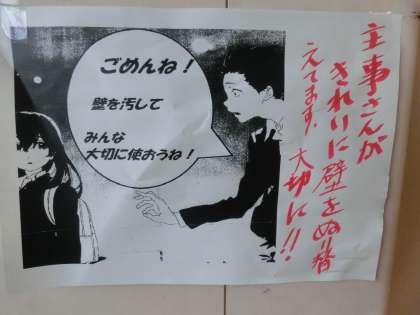 ごめんね！
壁を汚して
みんな
大切に使おうね！
主事さんが
きれいに壁をぬり替
えてます。大切に!!